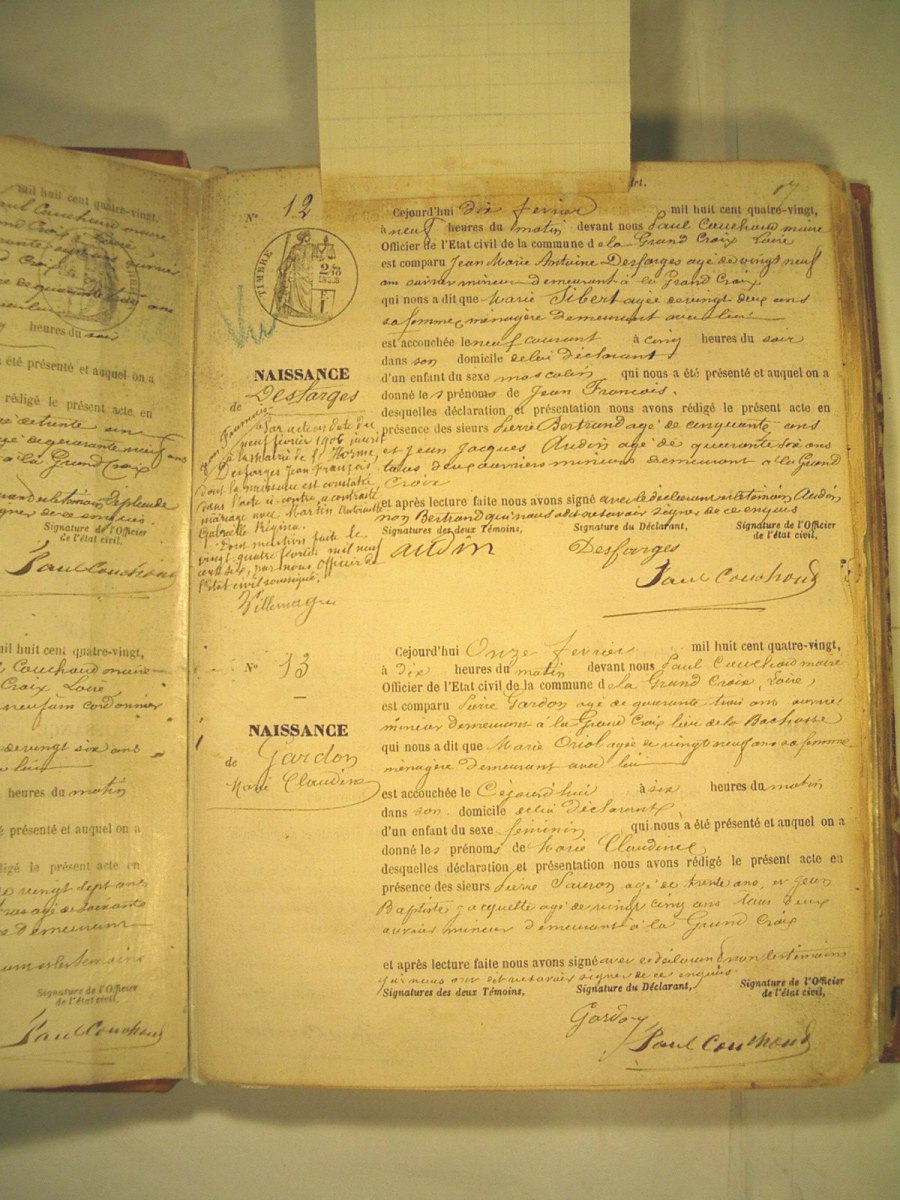 mil huit cent quatre-vingt,
Paul Couchoud maire
heures du soir
été présenté et auquel on a
rédigé le présent acte en
à la Grand Croix
Signature de l'Officier
de l'état civil,
Paul Couchoud
mil huit cent quatre-vingt,
Couchoud maire
Croix Loire
cordonnier
de vingt six ans
heures du matin
été présenté et auquel on a
rédigé le présent acte en
de vingt sept ans
Signature de l'Officier
de l'état civil,
Paul Couchoud
N° 12
TIMBRE
NAISSANCE
de Desfarges
Jean François
Par acte en date du
neuf février 1906 inscrit
à la Mairie de l'Horme,
Desfarges Jean François
dont la naissance est constatée
dans l'acte ci-contre a contracté
mariage avec Martin Antoinette
Gabrielle Régina.
Dont mention faite le
vingt quatre février mil neuf
cent six, par nous officier de
l'état civil soussigné.
Villemagne
Cejourd'hui dix fevrier mil huit cent quatre-vingt,
à neuf heures du matin devant nous Paul Couchoud maire
Officier de l'Etat civil de la commune de la Grand Croix Loire
est comparu Jean Marie Antoine Desfarges agé de vingt neuf
ans ouvrier mineur demeurant à la Grand Croix
qui nous a dit que Marie Sibert agée de vingt deux ans
sa femme, ménagère demeurant avec lui
est accouchée le neuf courant à cinq heures du soir
dans son domicile de lui déclarant
d'un enfant du sexe masculin qui nous a été présenté et auquel on a
donné les prénoms de Jean François.
desquelles déclaration et présentation nous avons rédigé le présent acte en
présence des sieurs Pierre Bertrand agé de cinquante ans
et Jean Jacques Audin agé de quarante six ans
tous deux ouvriers mineurs demeurant à la Grand
Croix
et après lecture faite nous avons signé avec le déclarant et le témoin Audin
non Bertrand qui nous a dit ne savoir signer de ce enquis
Signatures des deux Témoins, Signature du Déclarant, Signature de l'Officier
de l'état civil,
audin Desfarges Paul Couchoud
N° 13
NAISSANCE
de Gardon
Marie Claudine
Cejourd'hui Onze fevrier mil huit cent quatre-vingt,
à dix heures du matin devant nous Paul Couchoud maire
Officier de l'Etat civil de la commune de la Grand Croix, Loire,
est comparu Pierre Gardon agé de quarante trois ans ouvrier
mineur demeurant à la Grand Croix lieu de la Bachasse
qui nous a dit que Marie Oriol agée de vingt neuf ans sa femme
ménagère demeurant avec lui
est accouchée le Cejourd'hui à six heures du matin
dans son domicile de lui déclarant
d'un enfant du sexe féminin qui nous a été présenté et auquel on a
donné les prénoms de Marie Claudine
desquelles déclaration et présentation nous avons rédigé le présent acte en
présence des sieurs Pierre agé de trente ans, et Jean
Baptiste Jacquette agé de vingt cinq ans tous deux
ouvrier mineur demeurant à la Grand Croix
et après lecture faite nous avons signé avec le déclarant non les témoins
qui nous ont dit ne savoir signer de ce enquis.
Signatures des deux Témoins, Signature du Déclarant, Signature de l'Officier
de l'état civil,
Gardon
Paul Couchoud